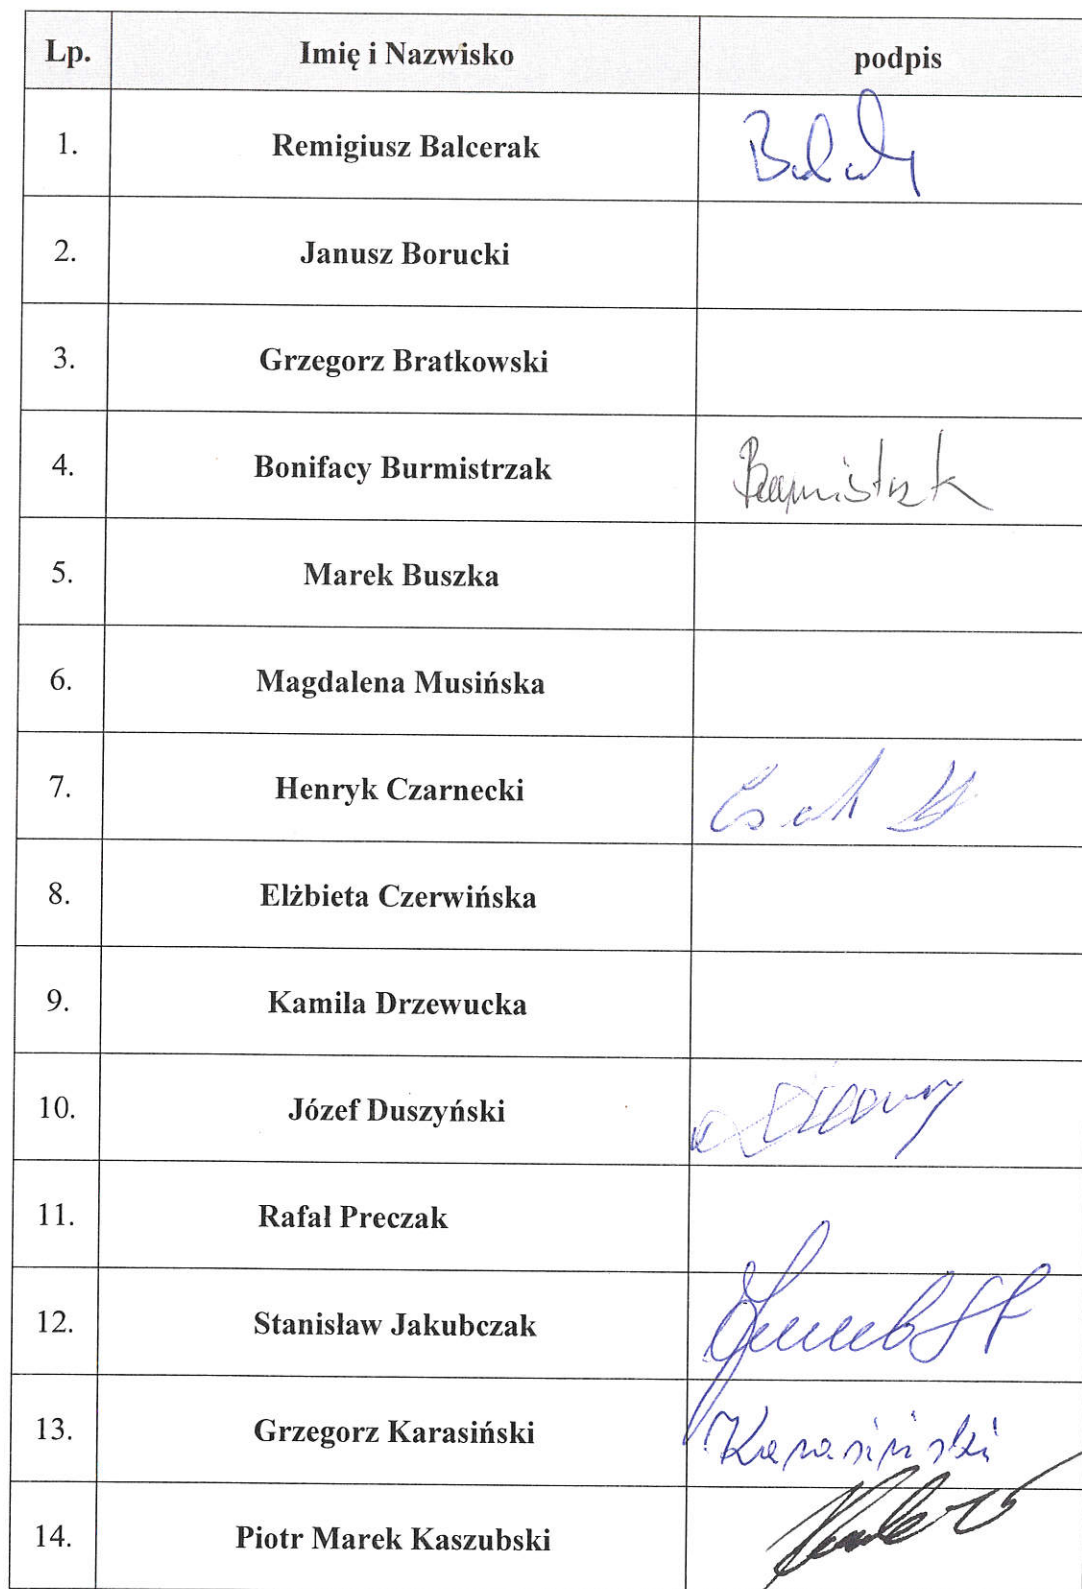 Lp. Imię i Nazwisko podpis
1. Remigiusz Balcerak
2. Janusz Borucki
3. Grzegorz Bratkowski
4. Bonifacy Burmistrzak
5. Marek Buszka
6. Magdalena Musińska
7. Henryk Czarnecki
8. Elżbieta Czerwińska
9. Kamila Drzewucka
10. Józef Duszyński
11. Rafał Preczak
12. Stanisław Jakubczak
13. Grzegorz Karasiński Karasiński
14. Piotr Marek Kaszubski